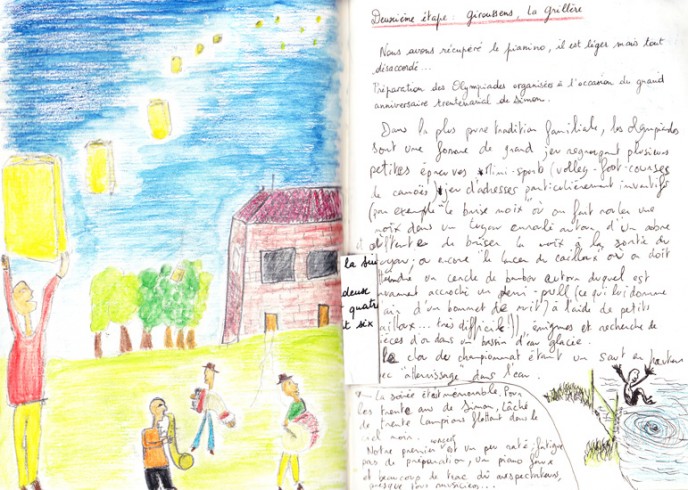 Deuxième étape : giroussens, La grillère
Nous avons récupéré le pianino, il est léger mais tout
désaccordé...
Préparation des Olympiades organisées à l'occasion du grand
anniversaire trentenarial de Simon.
Dans la plus pure tradition familiale, les olympiades
sont une forme de grand jeu regroupant plusieurs
petites épreuves Mini-sports (volley-foot-courses
de canoës) jeu d'adresses particulièrement inventifs
(par exemple "le brise noix" où on fait rouler une
noix dans un tuyau enroulé autour d'un arbre
de briser la noix à la sortie du
tuyau; ou encore le lancer de cailloux où on doit
un cercle de bambou autour duquel est
accroché un demi-pull (ce qui lui donne
d'un bonnet de nuit) à l'aide de petits
cailloux... très difficile!), énigmes et recherche de
pièces d'or dans un bassin d'eau glacée.
le clou de championnat étant un saut en hauteur
avec atterrissage dans l'eau.
la sui
deux
quatr
t six
La soirée est mémorable. Pour
les trente ans de Simon, lâché
de trente lampions flottant dans le
ciel noir.
Notre premier concert est un peu raté, fatigue
pas de préparation, un piano faux
et beaucoup de trac dû aux spectateurs,
presque tous musiciens...